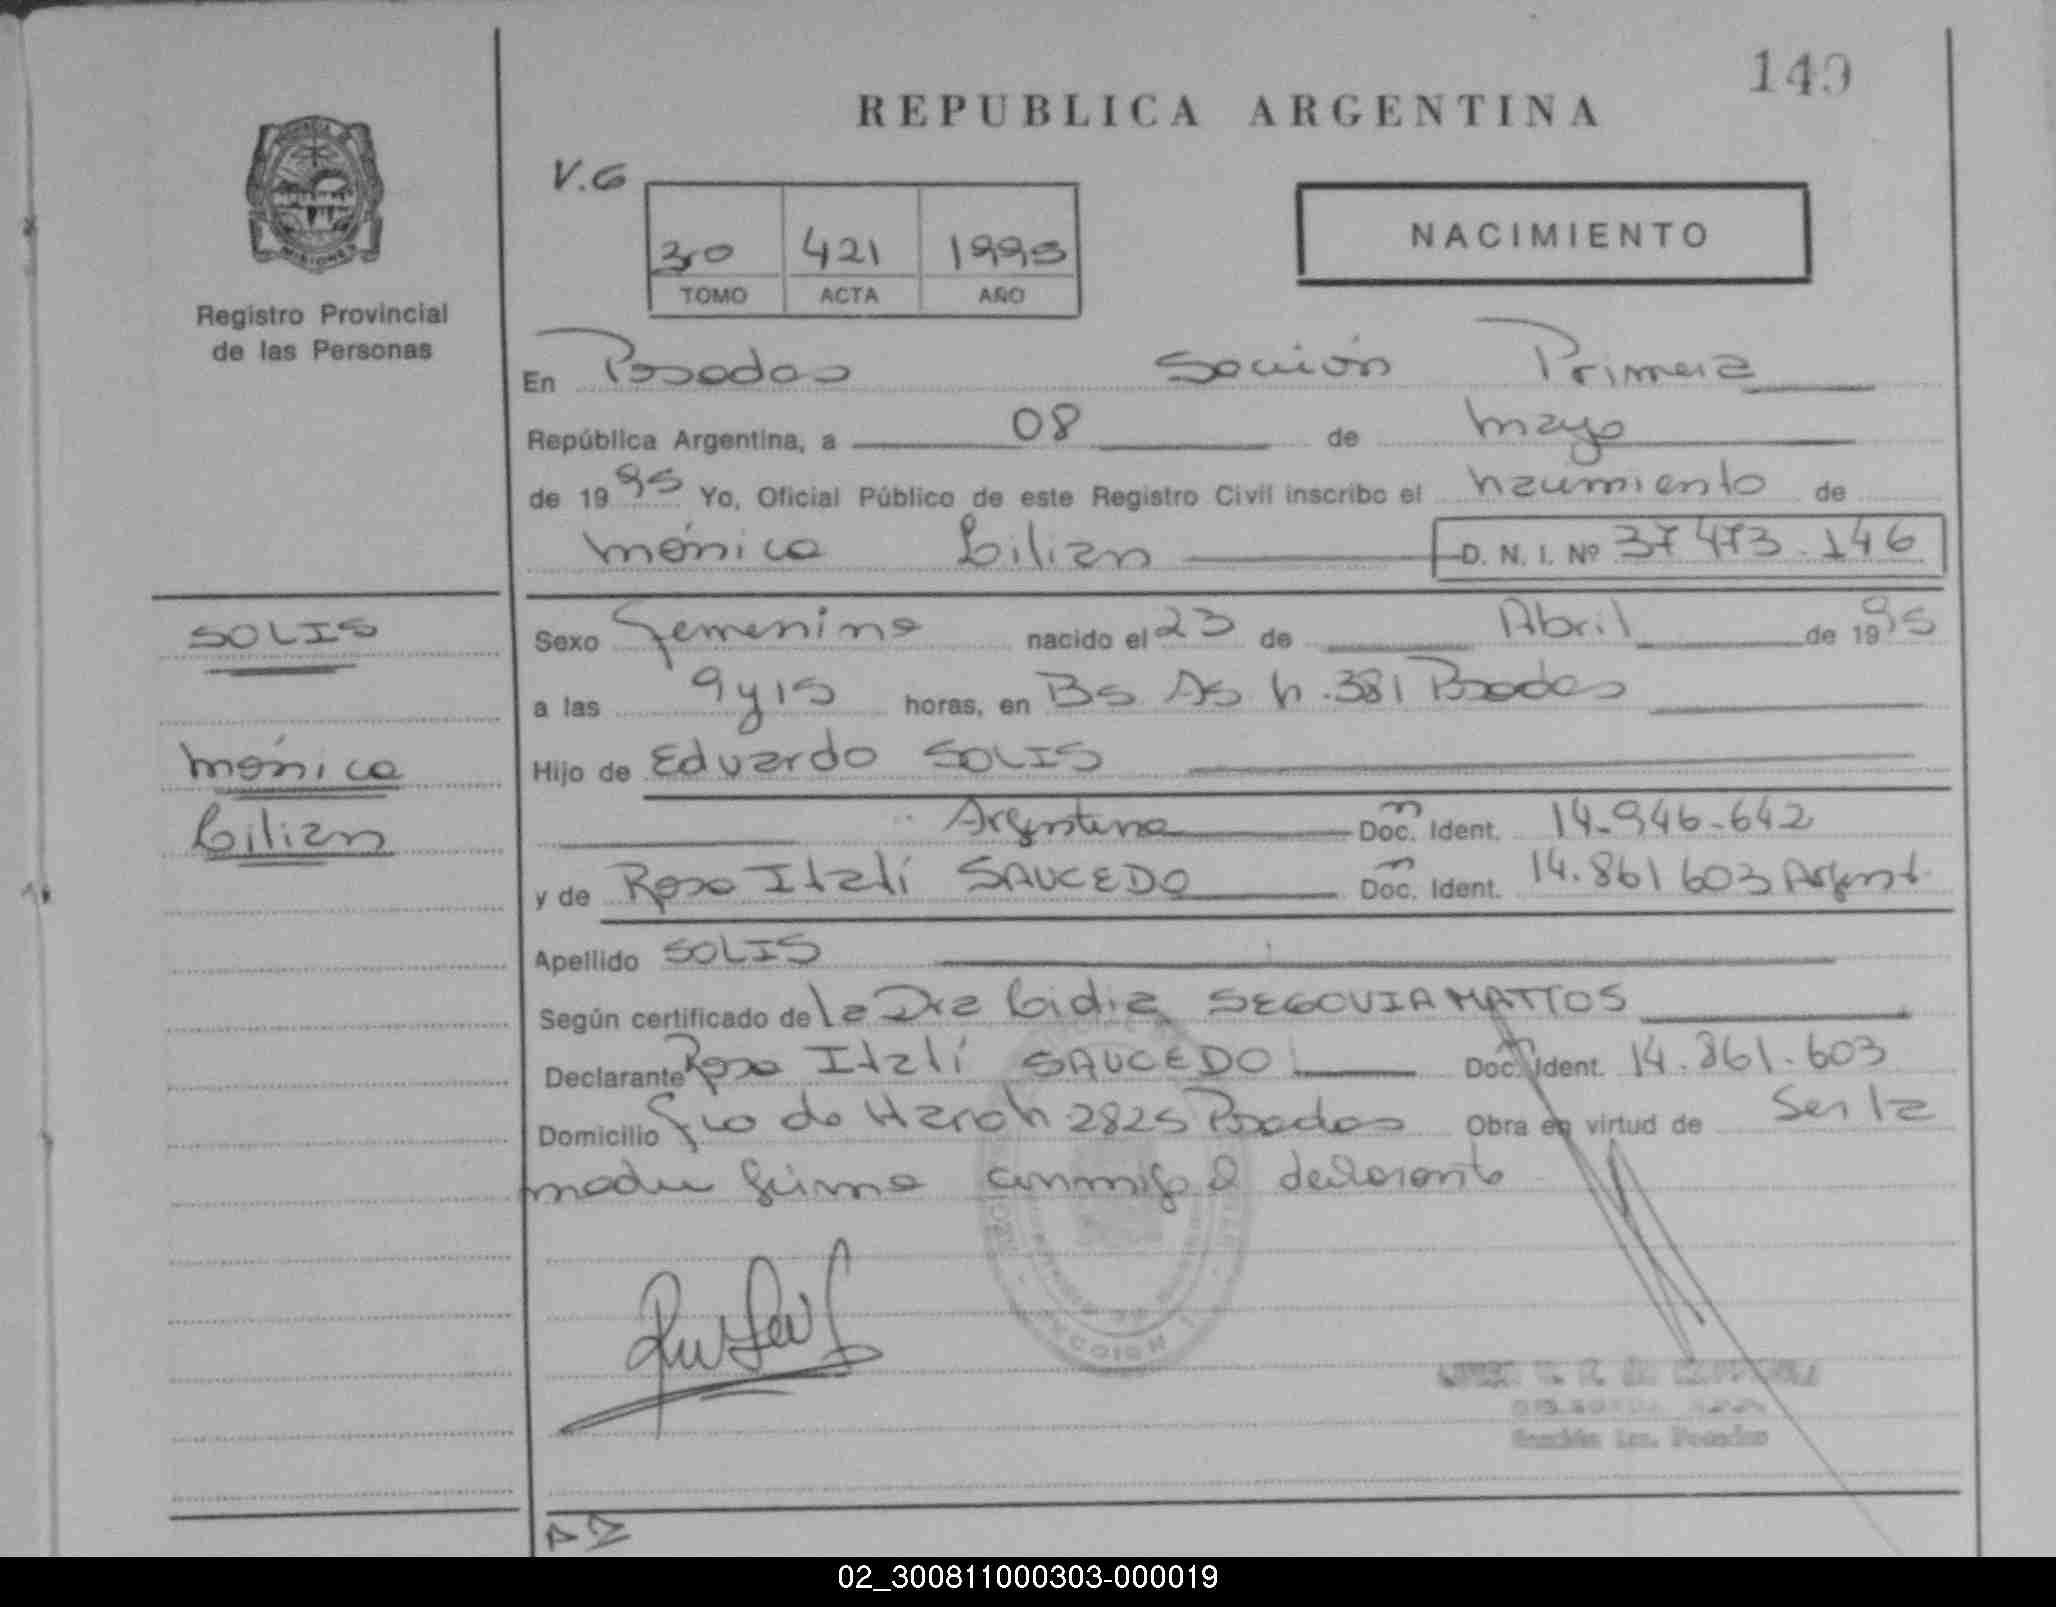 149
REPUBLICA ARGENTINA
V.G
3ro 421 1995
TOMO ACTA AÑO
NACIMIENTO
MISIONES
Registro Provincial
de las Personas
En Posadas Sección Primera
República Argentina, a 08 de mayo
de 1995 Yo, Oficial Público de este Registro Civil inscribo el nacimiento de
Mónica Lilian D. N. I. Nº 37 473.146
SOLIS
Mónica
Lilian
Sexo Femenino nacido el 23 de Abril de 1995
a las 9 y 15 horas, en Bs As n.381 Posadas
Hijo de Eduardo SOLIS
Argentino Doc. Ident. 14.946.642
y de Rosa Itatí SAUCEDO Doc. Ident. 14.861 603 Argent.
Apellido SOLIS
Según certificado de la Dra Lidia SEGOVIA MATTOS
Declarante Rosa Itatí SAUCEDO Doc. Ident. 14.861.603
Domicilio Fco de Haroh 2825 Posadas Obra en virtud de Ser la
madre firma conmigo el declarante
SECCION 1
Sección 1ra. Posadas
02_300811000303-000019